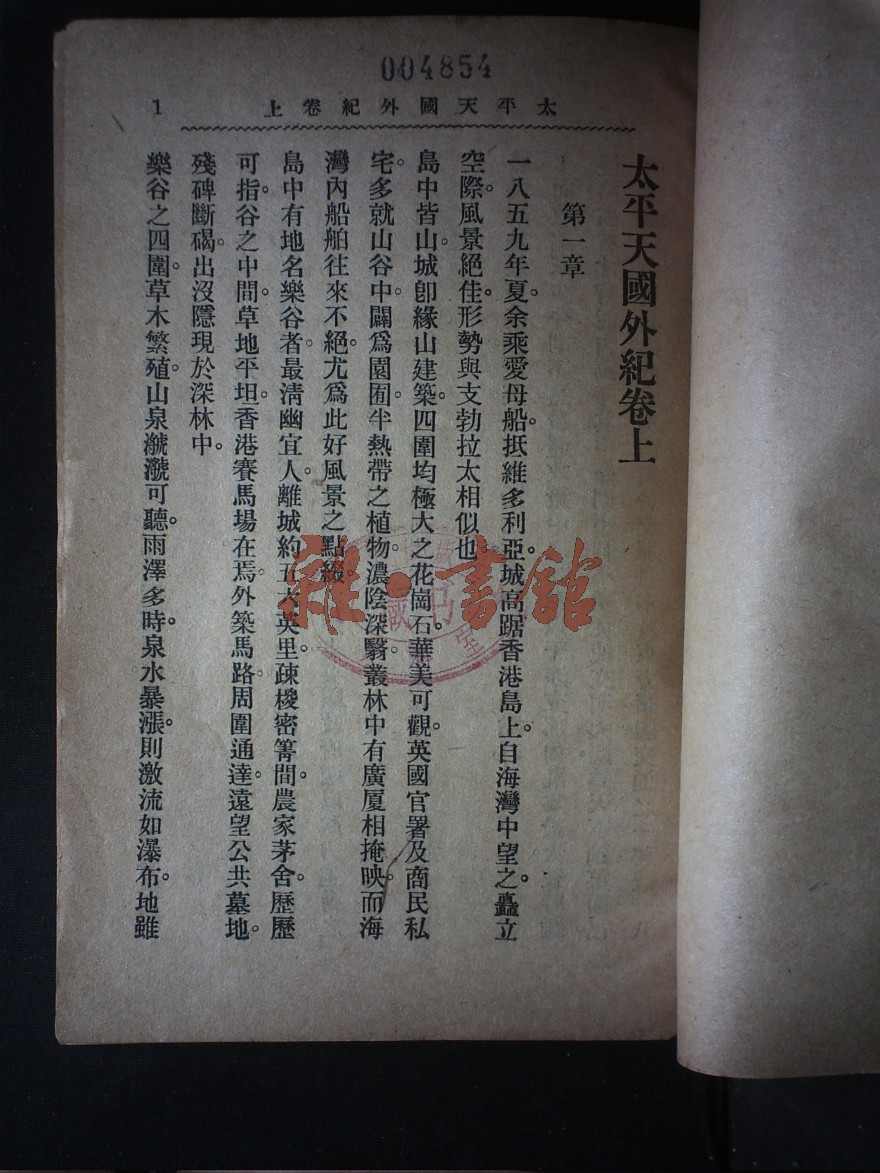 004854
太平天國外紀卷上
1
太平天國外紀卷上
第一章
一八五九年夏。余乘愛母船。抵維多利亞。城高踞香港島上。自海灣中望之。矗立
空際。風景絕佳。形勢與支勃拉太相似也。
島中皆山。城卽緣山建築。四圍均極大之花崗石。華美可觀。英國官署及商民私
宅。多就山谷中。闢爲園囿。半熱帶之植物。濃陰深翳。叢林中有廣厦相掩映。而海
灣內船舶往來不絕。尤爲此好風景之點綴。
島中有地名樂谷者。最淸幽宜人。離城約五六英里。疎椶密箐間。農家茅舍。歷歷
可指。谷之中間。草地平坦。香港賽馬場在焉。外築馬路。周圍通達。遠望公共墓地。
殘碑斷碣。出沒隱現於深林中。
樂谷之四圍。草木繁殖。山泉㶁㶁可聽。雨澤多時。泉水暴漲。則激流如瀑布。地雖
雜·書館